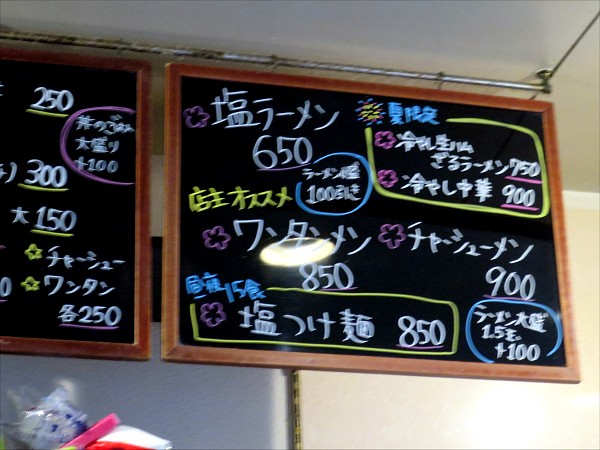 250
丼のごはん
大盛り
+100
300
大 150
チャーシュー
ワンタン
各250
塩ラーメン
650
夏限定
冷やし生ハム
ざるラーメン 750
冷やし中華 900
店主オススメ
100引き
ワンタンメン
850
チャーシューメン
900
15食
塩つけ麺 850
ラーメン大盛
1.5玉
+100